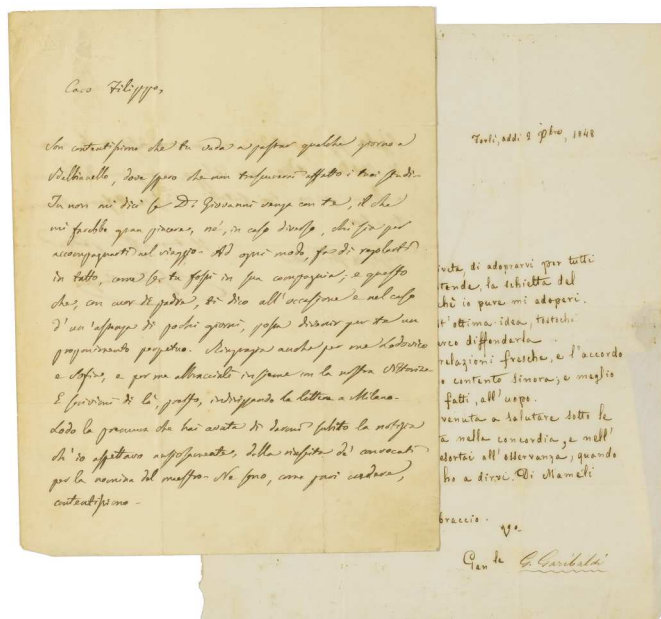 Caro Filippo,
Son contentissimo che tu vada a passar qualche giorno a
Belbianello, dove spero che non trascurerai affatto i tuoi studi-
Tu non mi dici se Di Giovanni venga con te, il che
mi farebbe gran piacere, né, in caso diverso, chi sia per
accompagnarti nel viaggio- Ad ogni modo, fa di regolarti
in tutto, come se tu fossi in sua compagnia; e questo
che, con cuor di padre, ti dico all'occasione e nel caso
d'un'assenza di pochi giorni, possa divenir per te un
proponimento perpetuo. Ringrazia anche per me Lodovico
e Sofia, e per me abbracciali insieme con la nostra Vittorina
E scrivimi di là presto, indirizzando la lettera a Milano-
Lodo la premura che hai avuta di darmi subito la notizia
ch'io aspettavo ansiosamente, della de' convocati
per la nomina del maestro- Ne sono, come puoi credere,
contentissimo-
Forlì, addì 9 9bre, 1848
di adoprarvi per tutti
tende, la schietta del
chè io pure mi adoperi.
t'ottima idea, testechè
arco diffonderla
relazioni fresche, e l'accordo
o contento sinora; e meglio
fatti, all'uopo.
venuta a salutare sotto le
tà nella concordia, e nell'
esortai all'osservanza, quando
ho a dirvi. Di Mameli
braccio.
Gen le G. Garibaldi